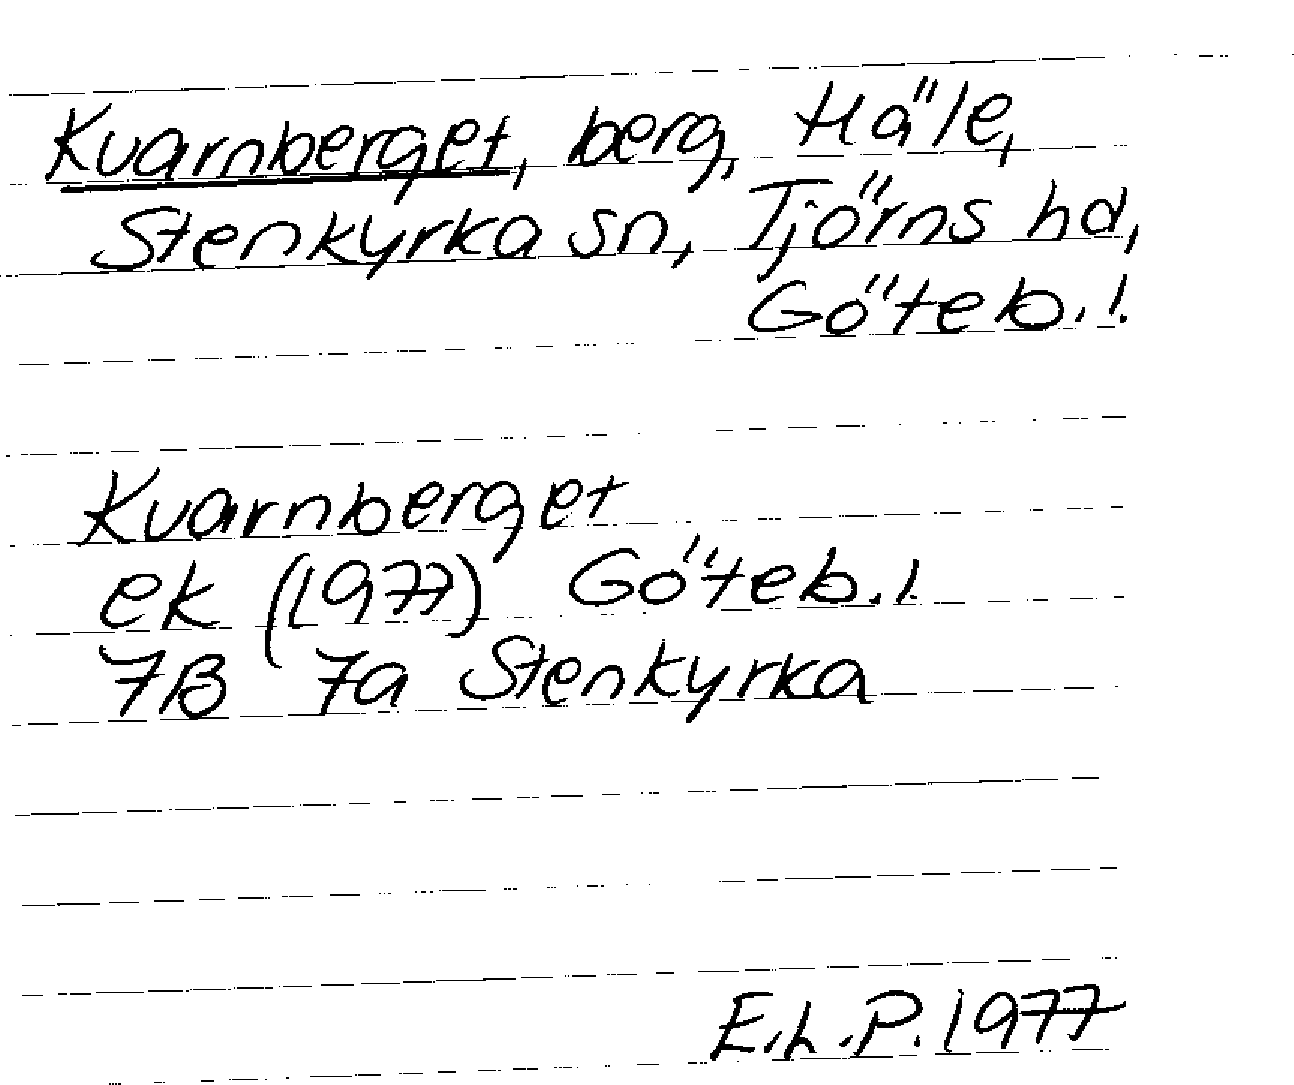 Kvarnberget, berg, Häle,
Stenkyrka sn, Tjörns hd,
Göteb. l.
Kvarnberget
ek (1977) Göteb. l.
7B 7a Stenkyrka
E.L.P. 1977